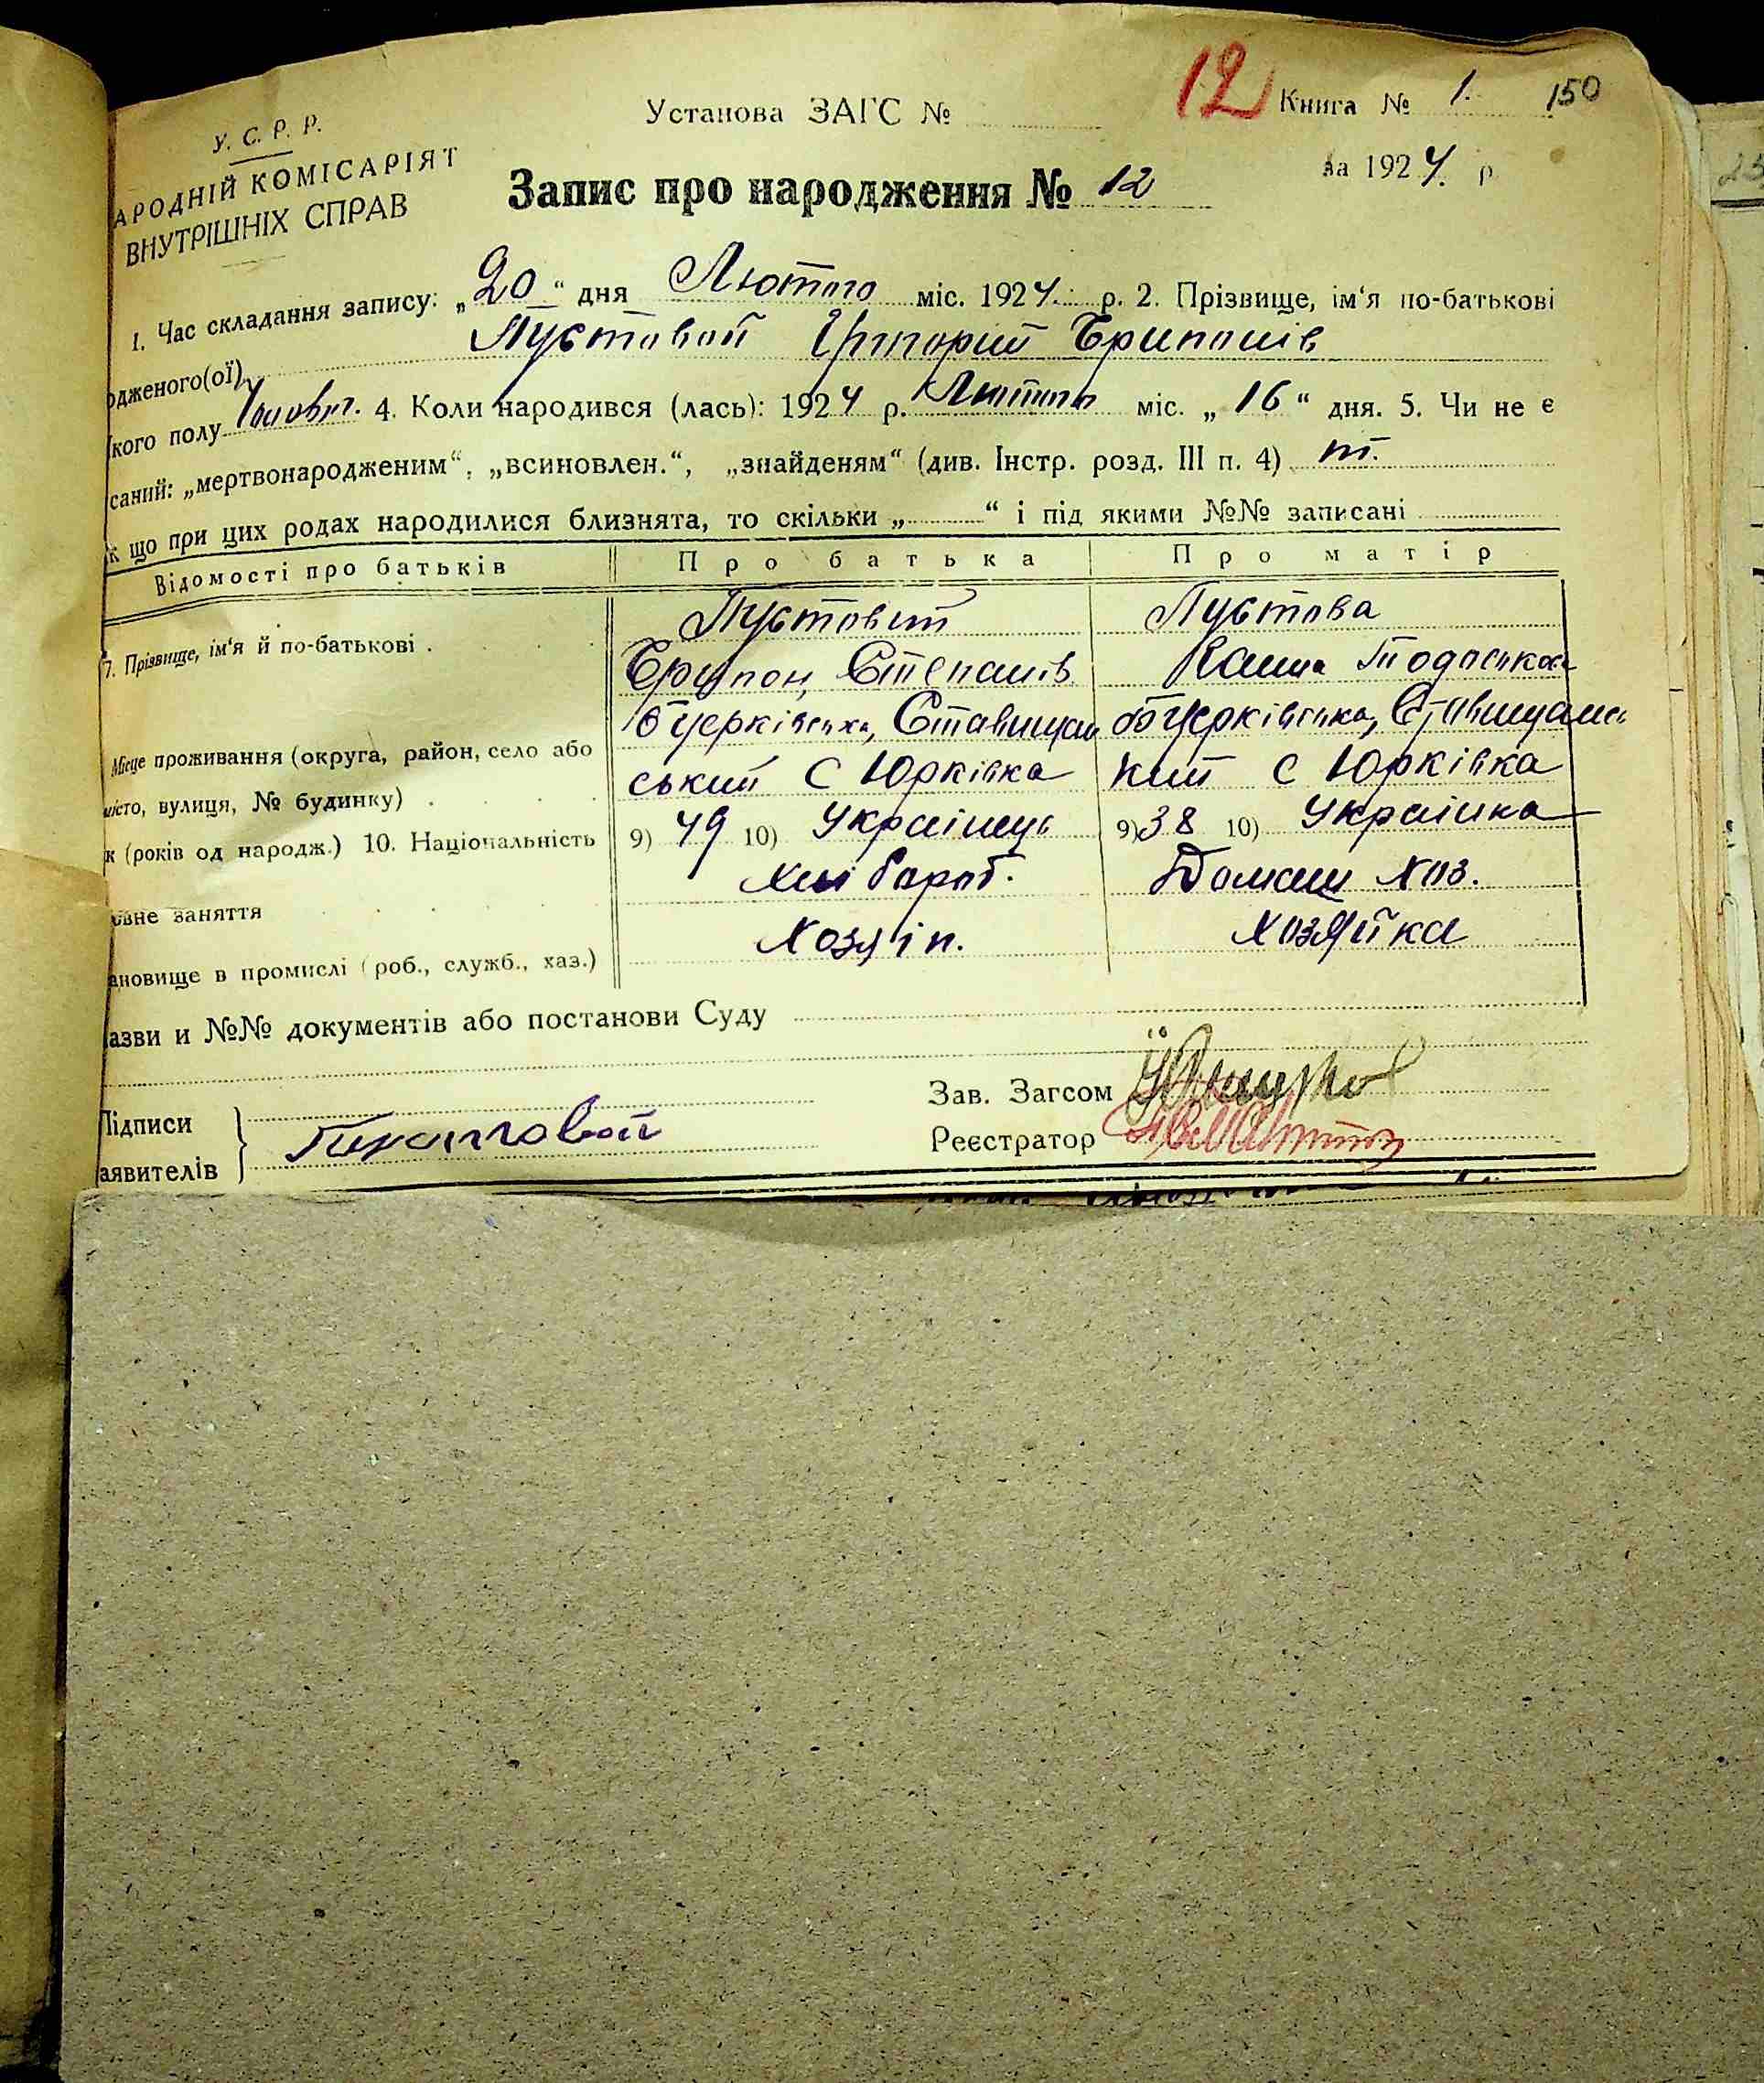 У. С. Р. Р.
АРОДНІЙ КОМІСАРІЯТ
ВНУТРІШНІХ СПРАВ
Установа ЗАГС №
12 Книга № 1. 150
за 1924. р
Запис про народження № 12
1. Час складання запису: „20“ дня Лютого міс. 1924. р. 2. Прізвище, ім‘я по-батькові
одженого(ої) Пустовой
кого полу 4. Коли народився (лась): 1924 р. Лютого міс. „16“ дня. 5. Чи не є
саний: „мертвонародженим“, „всиновлен.“, „знайденям“ (див. Інстр. розд. III п. 4)
к що при цих родах народилися близнята, то скільки „ “ і під якими №№ записані
Відомості про батьків Про батька Про матір
7. Прізвище, ім‘я й по-батькові . Пустовий Пустова
Степанів
Місце проживання (округа, район, село або Бцерківська, Ставищан Бцерківська,
місто, вулиця, № будинку) . ський с Юрківка кий с Юрківка
к (років од народж.) 10. Національність 9) 49 10) Украінець 9) 38 10) Украінка
овне заняття Домаш хоз.
ановище в промислі (роб., служб., хаз.) Хозяїн. Хозяйка
азви и №№ документів або постанови Суду
Зав. Загсом
Підписи
Реєстратор
аявителів